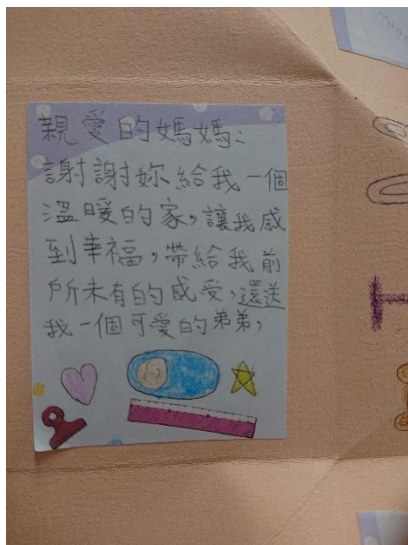 親愛的媽媽：
謝謝妳給我一個
溫暖的家，讓我感
到幸福，帶給我前
所未有的感受，還送
我一個可愛的弟弟，